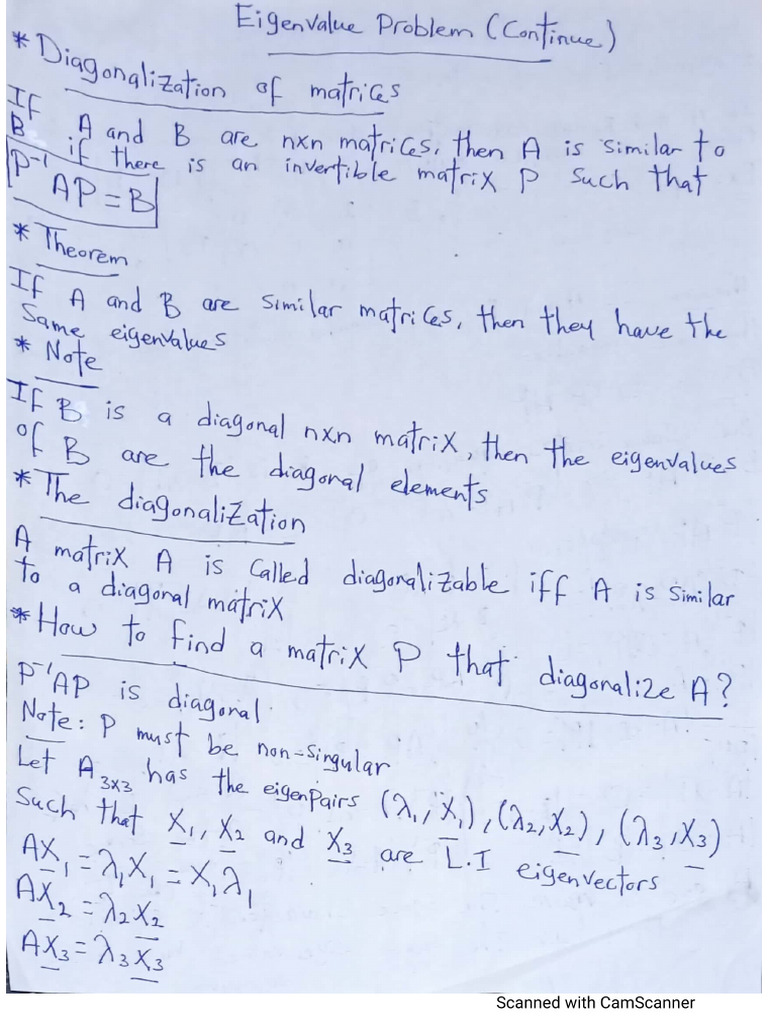 Eigenvalue Problem (Continue)
* Diagonalization of matrices
If A and B are nxn matrices, then A is similar to
B if there is an invertible matrix P such that
P⁻¹AP = B
* Theorem
If A and B are similar matrices, then they have the
same eigenvalues
* Note
If B is a diagonal nxn matrix, then the eigenvalues
of B are the diagonal elements
* The diagonalization
A matrix A is called diagonalizable iff A is similar
to a diagonal matrix
* How to find a matrix P that diagonalize A?
P⁻¹AP is diagonal.
Note: P must be non-singular
Let A₃ₓ₃ has the eigenpairs (λ₁, X₁), (λ₂, X₂), (λ₃, X₃)
Such that X₁, X₂ and X₃ are L.I eigenvectors
AX₁ = λ₁X₁ = X₁λ₁
AX₂ = λ₂X₂
AX₃ = λ₃X₃
Scanned with CamScanner